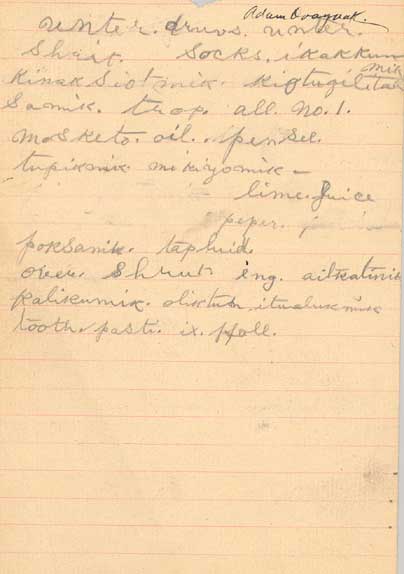 Adam Ovayuak.
unter. druvs. unter.
Shirt. Socks. ikakkun
mik
Kinak Siotmik. kigtugilitak
Samik. trap. all. No. 1.
mosketo. oil. pensel.
tupikmik. mikiyomik –
lime. Juice
peper.
poksanik. tapluid.
over. Shrut ing. ailkatinik
kalikumik. oliktun. itualukmik
tooth. past. ix. Holl.